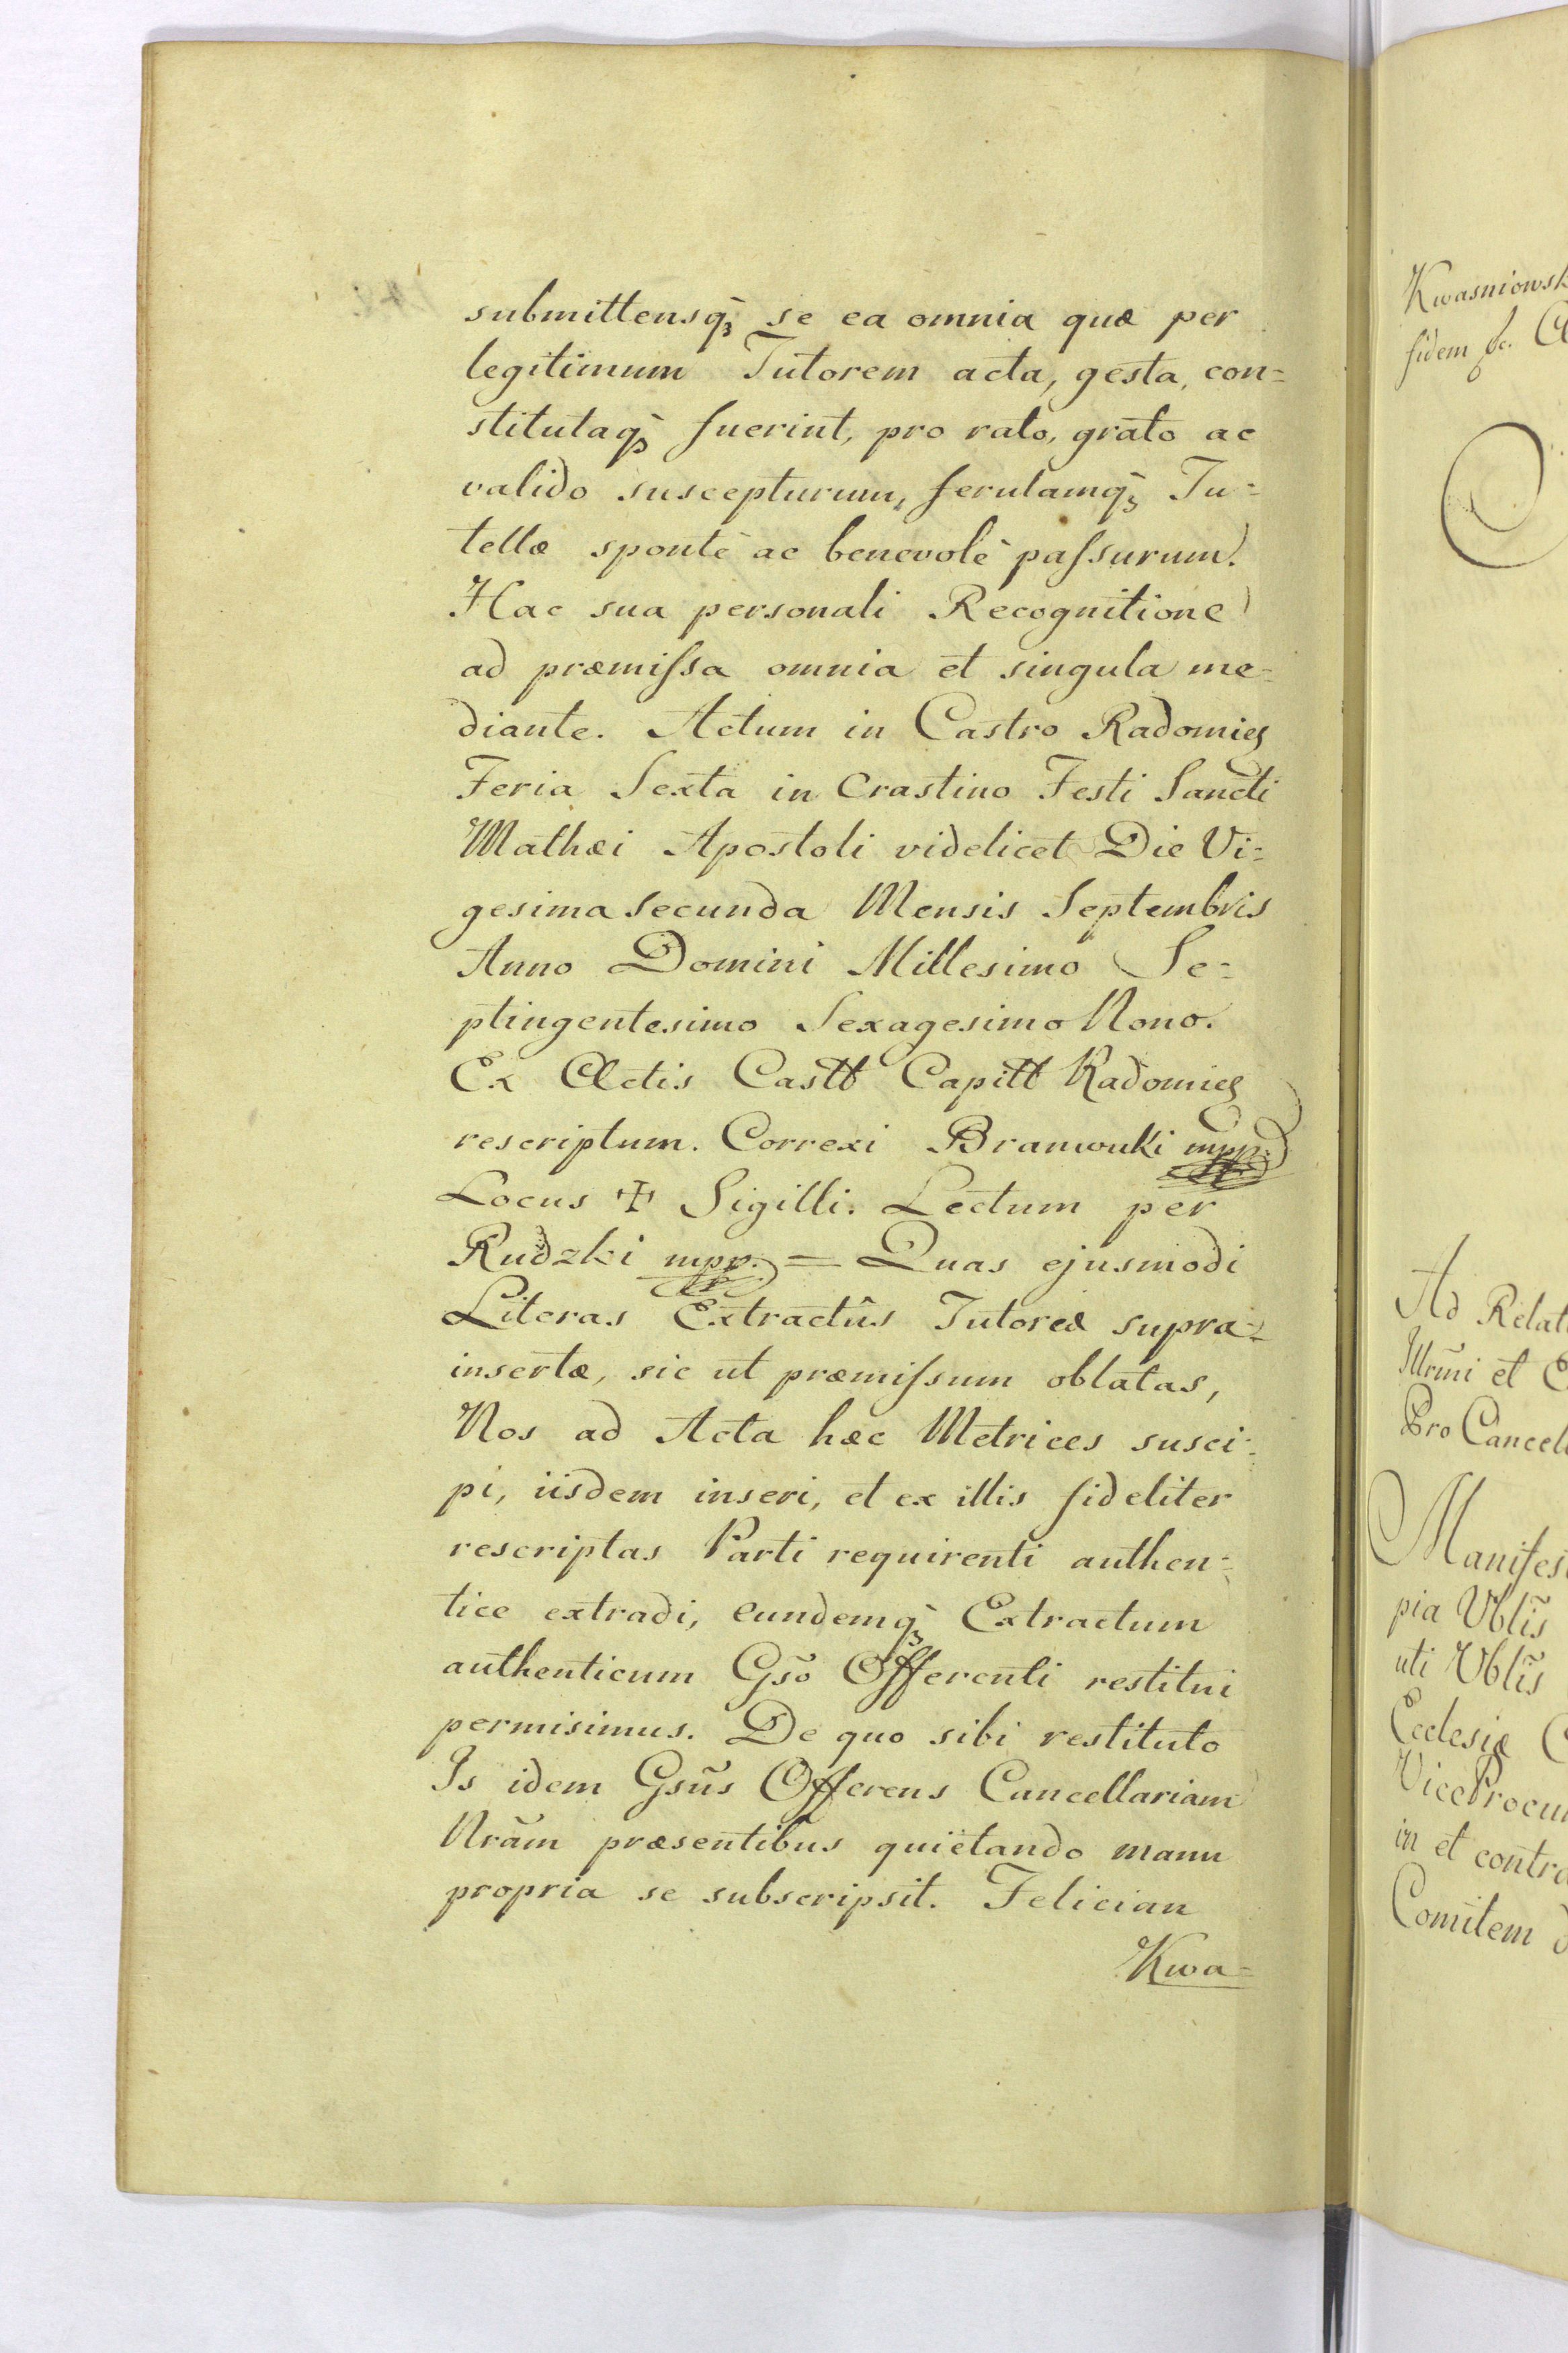 submittensq̃ se ea omnia quæ per
legitimum Tutorem acta, gesta, con=
stitutaq̃ fuerint, pro rato, grato ac
valido suscepturum, ferulamq̃ Tu=
tellæ spontè ac benevolè paſsurum.
Hac sua personali Recognitione
ad præmiſsa omnia et singula me=
diante. Actum in Castro Radomieȝ
Feria Sexta in Crastino Festi Sancti
Mathæi Apostoli videlicet Die Vi=
gesima secunda Mensis Septembris
Anno Domini Millesimo Se=
ptingentesimo Sexagesimo Nono.
Ex Actis Castt Capitt Radomieȝ
rescriptum. Correxi mpp.
Locus ✠ Sigilli. Lectum per
Rudzki mpp. = Quas ejusmodi
Literas Extractûs Tutoreæ supra=
insertæ, sic ut præmiſsum oblatas,
Nos ad Acta hæc Metrices susci=
pi, iisdem inseri, et ex illis fideliter
rescriptas Parti requirenti authen=
tice extradi, eundemq̃ Extractum
authenticum Gsõ Offerenti restitui
permisimus. De quo sibi restituto
Is idem Gsũs Offerens Cancellariam
Nrãm præsentibus quietando manu
propria se subscripsit. Felician
Kwa=
Kwasniowsk
fidem
Ad Relat
Illrm̃i et
Pro Cancel
Manifes
pia Vblĩs
uti Vblĩs
Ecclesiæ
ViceProcu
in et contra
Comitem